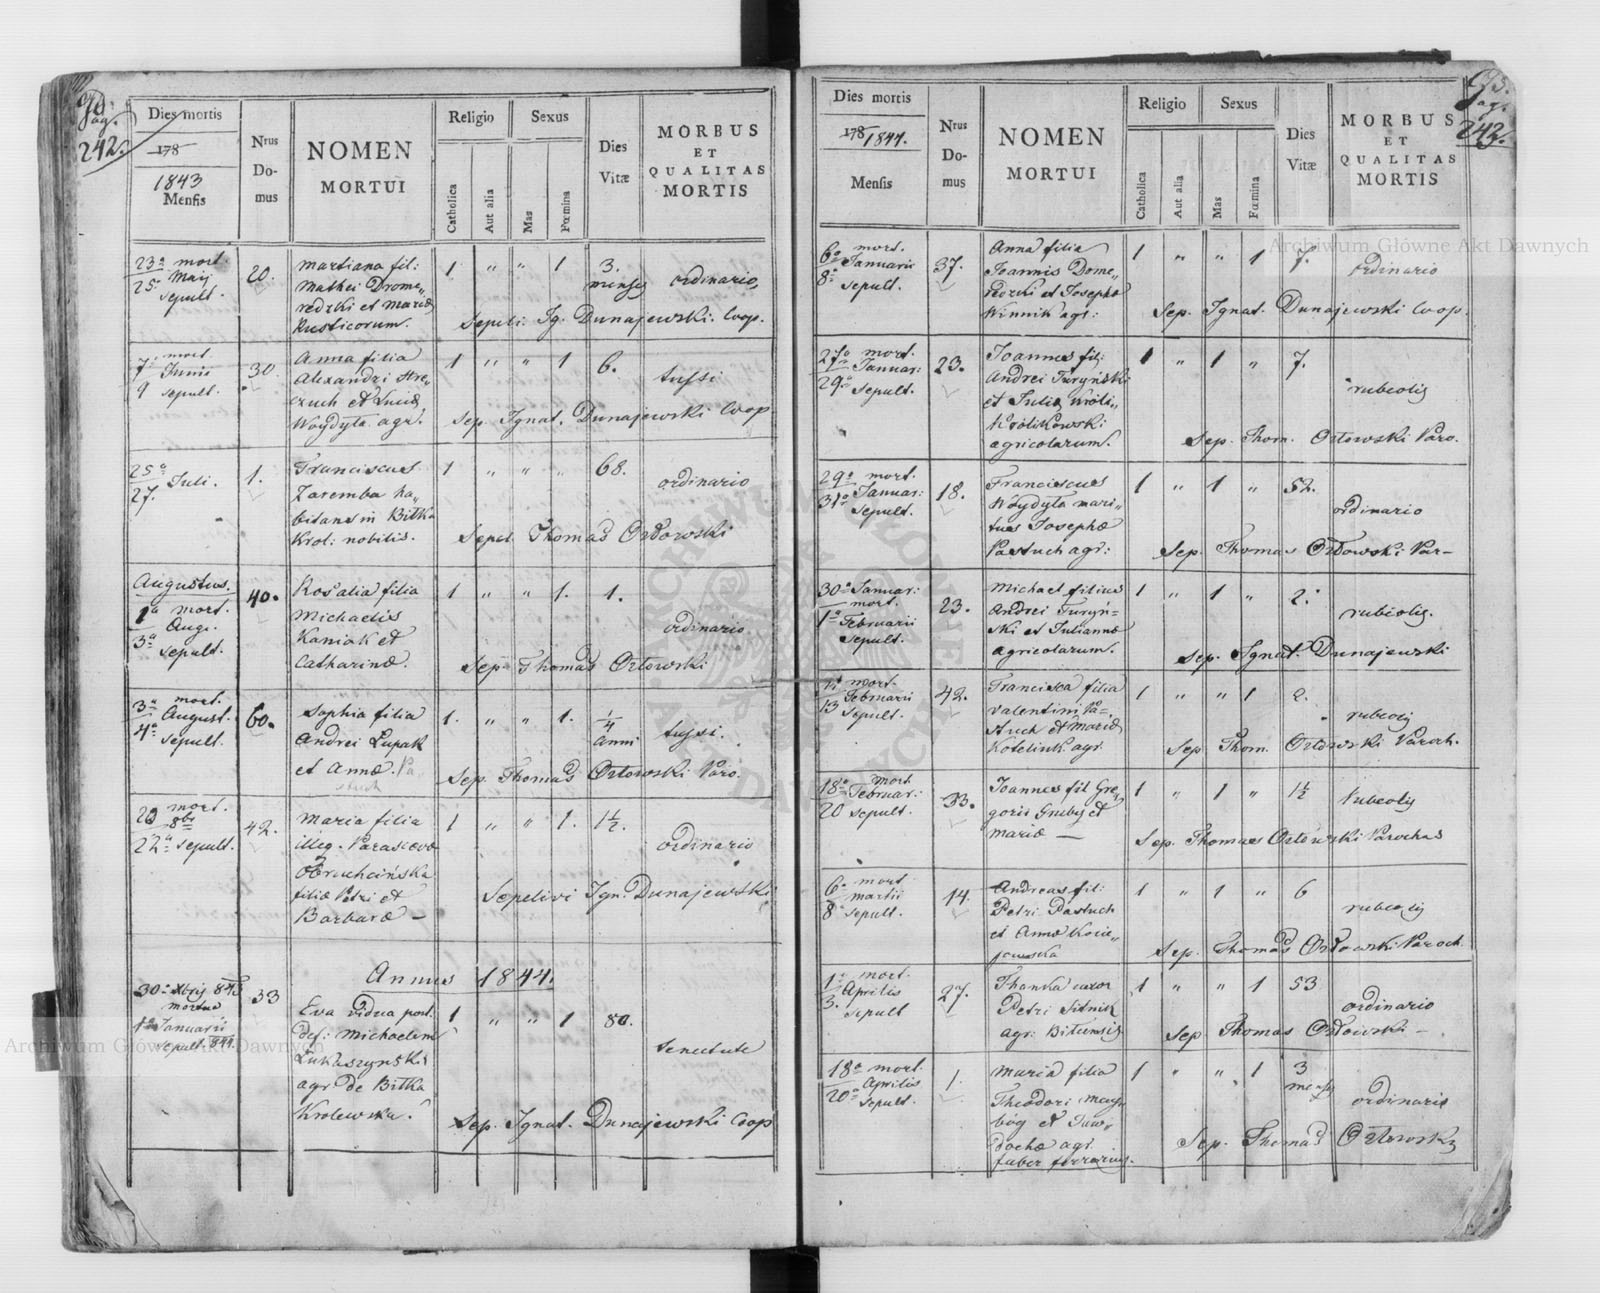 Pag. 242.
Dies mortis
178
1843
Mensis
Nrus
Do-
mus
NOMEN
MORTUI
Religio
Catholica
Aut alia
Sexus
Mas
Fœmina
Dies
Vitæ
MORBUS
ET
QUALITAS
MORTIS
23a mort.
Maij
25. sepult.
20.
Martiana fil:
Mathei Drome„
redzki et Mariæ
Rusticorum.
1 „ „ 1
3.
menses
ordinario,
Sepeli. Ig. Dunajewski. Coop.
7. mort.
Junii
9 sepult.
30
Anna filia
Alexandri Stre„
czuch et Luciæ
Woydyła agr.
1 „ „ 1 6.
tussi
sep. Ignat. Dunajewski Coop.
25a
27. Juli.
1.
Franciscus
Zaremba ha„
bitans in Biłka
Krol: nobilis.
1 „ „ „ 68.
ordinario
Sepel. Thomas Orłowski
Augustus.
1a mort.
Aug.
3a sepult.
40.
Rosalia filia
Michaelis
Kaniak et
Catharinæ.
1 „ „ 1. 1.
ordinario
Sep. Thomas Orłowski
3a mort.
August.
4a sepult.
60.
Sophia filia
Andrei Łupak
et Annæ. Pa
stuch
1. „ „ 1. 1/4
Anni
tussi.
Sep. Thomas Orłowski Paro.
20 mort.
8br
22a sepult.
42.
Maria filia
illeg. Parascevæ
Obruchcińska
filiæ Petri et
Barbaræ –
1 „ „ 1. 1½.
ordinario
Sepelivi Ign. Dunajewski
Annus 1844.
30a Xbris 843
mortua
1a Januarii
sepult. 844.
33
Eva vidua post.
def: Michaelem
Łukaszyński
agr de Biłka
Krolewska.
1 „ „ 1 80.
senectute
Sep. Ignat. Dunajewski Coop
Pag.
242.
Dies mortis
178 1844.
Mensis
Nrus
Do-
mus
NOMEN
MORTUI
Religio
Catholica
Aut alia
Sexus
Mas
Fœmina
Dies
Vitæ
MORBUS
ET
QUALITAS
MORTIS
6a mort.
Januarii
8a sepult.
37.
Anna filia
Joannis Dome„
redzki et Josephæ
Winnik agr:
1 „ „ 1 7.
ordinario
Sep. Ignat. Dunajewski Coop.
27a mort.
Januar:
29a sepult.
23.
Joannes fil:
Andrei Turyński
et Juliæ
Krolikowski
agricolarum.
1 „ 1 „ 7.
rubeolis
Sep. Thom. Orłowski Paro.
29a mort.
Januar:
31a sepult.
18.
Franciscus
Woydyła mari„
tus Josephæ
Pastuch agr:
1 „ 1 „ 52.
ordinario
Sep. Thomas Orłowski Par–
30a Januar:
mort.
1a Februarii
sepult.
23.
Michael filius
Andrei Turyń=
ski et Juliannæ
agricolarum.
1 „ 1 „ 2.
rubeolis.
sep. Ignat. Dunajewski
11 mort.
Februarii
13 sepult.
42.
Francisca filia
Valentini Pa=
stuch et Mariæ
Kotelink agr.
1 „ „ 1 2.
rubeolis
Sep. Thom. Orłowski Paroch.
18a mort
Februar:
20 sepult.
33.
Joannes fil Gre„
goris Gruby et
Mariæ —
1 „ 1 „ 1½
Rubeolis
Sep. Thomas Orłowski Parochus
6a mort.
Martii
8a sepult.
14.
Andreas fil:
Petri Pastuch
et Annæ Kocie„
jowska
1 „ 1 „ 6
rubeolis
Sep. Thomas Orłowski Paroch.
1a mort.
Aprilis
3. sepult
27.
Thanka uxor
Petri Sitnik
agr. Biłcensis
1 „ „ 1 53
ordinario
Sep Thomas Orłowski –
18a mort.
Aprilis
20a sepult.
1.
Maria filia
Theodori May„
bog et Juw„
dochæ agr
faber ferrarius.
1 „ „ 1 3
mensis
ordinario
Sep. Thomas Orłowski
Archiwum Główne Akt Dawnych
Archiwum Główne Akt Dawnych
ARCHIWUM GŁÓWNE AKT DAWNYCH